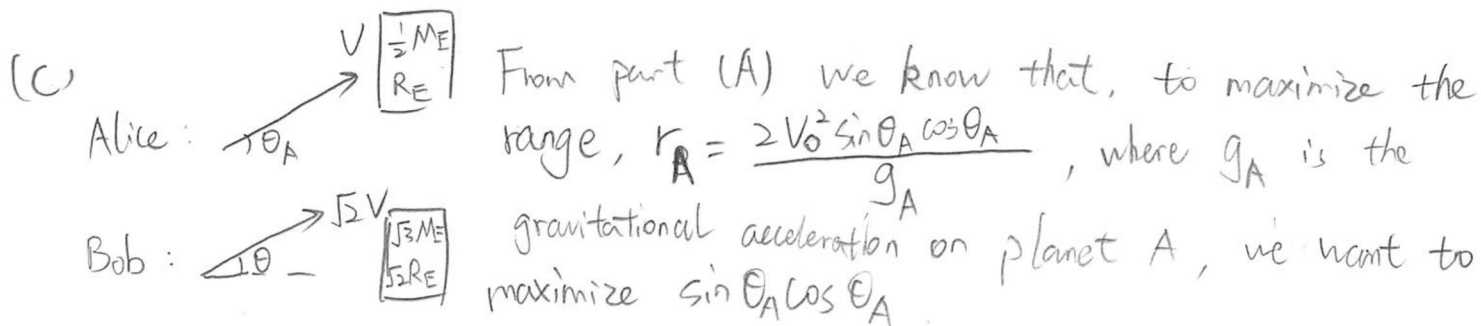 (C)
Alice : θ_A V ½M_E R_E
From part (A) we know that, to maximize the
range, r_A = 2V_0² sinθ_A cosθ_A / g_A , where g_A is the
Bob : θ √2V √3M_E √2R_E
gravitational acceleration on planet A, we want to
maximize sinθ_A cosθ_A